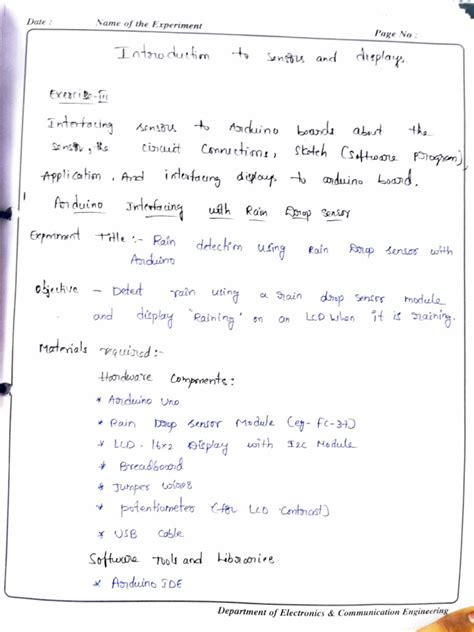 Date :
Name of the Experiment
Page No :
Introduction to sensors and displays
Exercise-III
Interfacing sensors to Arduino boards about the
circuit Connections, Sketch (Software Program),
Application, And interfacing displays to arduino board.
Arduino Interfacing with Rain Drop sensor
Experiment Title :- Rain detection using Rain Drop sensor with
Arduino
Objective - Detect rain using a rain drop sensor module
and display "Raining" on an LCD when it is raining.
Materials required:-
Hardware Components:
* Arduino Uno
* Rain Drop Sensor Module (eg- FC-37)
* LCD - 16x2 Display with I2C Module
* Breadboard
* Jumper wires
* potentiometer (for LCD Contrast)
* USB Cable
Software Tools and Libraries
* Arduino IDE
Department of Electronics & Communication Engineering